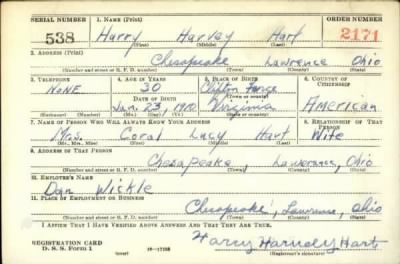 SERIAL NUMBER 1. NAME (Print) ORDER NUMBER
538 Harry Harvey Hart 2171
(First) (Middle) (Last)
2. ADDRESS (Print)
Chesapeake Lawrence Ohio
(Number and street or R. F. D. number) (Town) (County) (State)
3. TELEPHONE 4. AGE IN YEARS 5. PLACE OF BIRTH 6. COUNTRY OF CITIZENSHIP
NONE 30 Clifton Forge
(Town or county)
DATE OF BIRTH
Jan. 23, Virginia American
(Exchange) (Number) (Mo.) (Day) (Yr.) (State or country)
7. NAME OF PERSON WHO WILL ALWAYS KNOW YOUR ADDRESS 8. RELATIONSHIP OF THAT PERSON
Mrs. Coral Lucy Hart Wife
(Mr., Mrs., Miss) (First) (Middle) (Last)
9. ADDRESS OF THAT PERSON
Chesapeake Lawerance, Ohio
(Number and street or R. F. D. number) (Town) (County) (State)
10. EMPLOYER'S NAME
Dan Wickle
11. PLACE OF EMPLOYMENT OR BUSINESS
Chesapeake, Lawrence, Ohio
(Number and street or R. F. D. number) (Town) (County) (State)
I AFFIRM THAT I HAVE VERIFIED ABOVE ANSWERS AND THAT THEY ARE TRUE.
REGISTRATION CARD
D. S. S. Form 1 Harry Harvey Hart
(Registrant's signature)